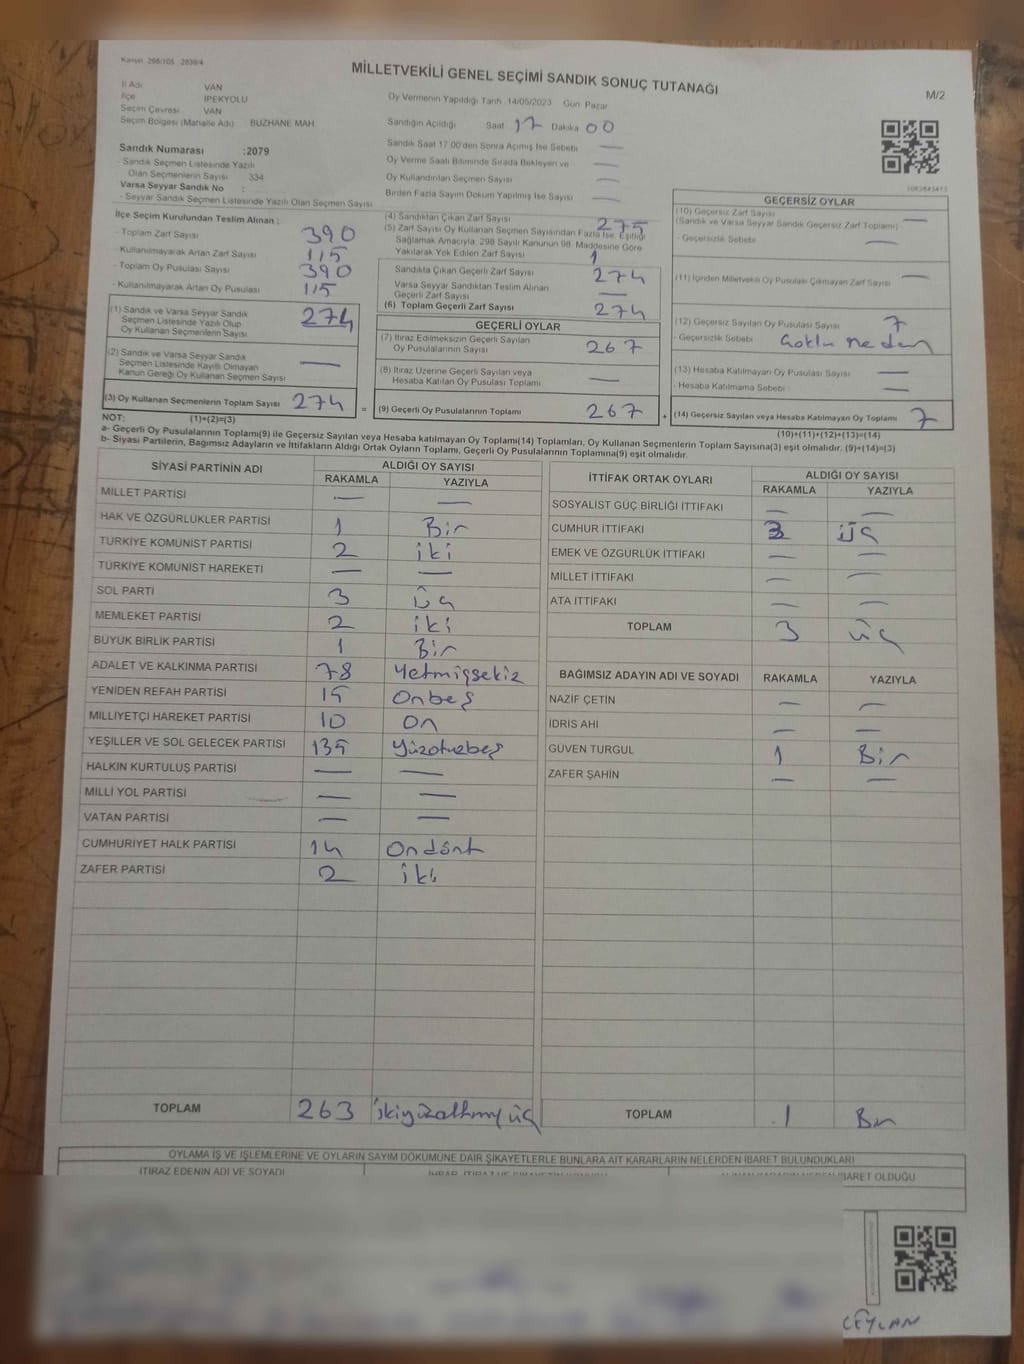 Kanun: 298/105 , 2839/4
MİLLETVEKİLİ GENEL SEÇİMİ SANDIK SONUÇ TUTANAĞI
M/2
İl Adı : VAN
İlçe : İPEKYOLU
Seçim Çevresi : VAN
Seçim Bölgesi (Mahalle Adı) : BUZHANE MAH.
Oy Vermenin Yapıldığı Tarih : 14/05/2023 Gün: Pazar
Sandığın Açıldığı Saat 17 Dakika 00
Sandık Saat 17.00'den Sonra Açılmış İse Sebebi —
Oy Verme Saati Bitiminde Sırada Bekleyen ve —
Oy Kullandırılan Seçmen Sayısı —
Birden Fazla Sayım Döküm Yapılmış İse Sayısı —
Sandık Numarası :2079
- Sandık Seçmen Listesinde Yazılı
Olan Seçmenlerin Sayısı : 334
Varsa Seyyar Sandık No :
- Seyyar Sandık Seçmen Listesinde Yazılı Olan Seçmen Sayısı :
İlçe Seçim Kurulundan Teslim Alınan ;
- Toplam Zarf Sayısı 390
- Kullanılmayarak Artan Zarf Sayısı 115
- Toplam Oy Pusulası Sayısı 390
- Kullanılmayarak Artan Oy Pusulası 115
(1) Sandık ve Varsa Seyyar Sandık
Seçmen Listesinde Yazılı Olup
Oy Kullanan Seçmenlerin Sayısı 274
(2) Sandık ve Varsa Seyyar Sandık
Seçmen Listesinde Kayıtlı Olmayan
Kanun Gereği Oy Kullanan Seçmen Sayısı —
(3) Oy Kullanan Seçmenlerin Toplam Sayısı 274
(4) Sandıktan Çıkan Zarf Sayısı 275
(5) Zarf Sayısı Oy Kullanan Seçmen Sayısından Fazla İse, Eşitliği
Sağlamak Amacıyla, 298 Sayılı Kanunun 98. Maddesine Göre
Yakılarak Yok Edilen Zarf Sayısı 1
Sandıkta Çıkan Geçerli Zarf Sayısı 274
Varsa Seyyar Sandıktan Teslim Alınan
Geçerli Zarf Sayısı —
(6) Toplam Geçerli Zarf Sayısı 274
GEÇERLİ OYLAR
(7) İtiraz Edilmeksizin Geçerli Sayılan
Oy Pusulalarının Sayısı 267
(8) İtiraz Üzerine Geçerli Sayılan veya
Hesaba Katılan Oy Pusulası Toplamı —
= (9) Geçerli Oy Pusulalarının Toplamı 267
GEÇERSİZ OYLAR
(10) Geçersiz Zarf Sayısı —
(Sandık ve Varsa Seyyar Sandık Geçersiz Zarf Toplamı)
- Geçersizlik Sebebi : —
(11) İçinden Milletvekili Oy Pusulası Çıkmayan Zarf Sayısı —
(12) Geçersiz Sayılan Oy Pusulası Sayısı 7
- Geçersizlik Sebebi : Çoklu neden
(13) Hesaba Katılmayan Oy Pusulası Sayısı —
- Hesaba Katılmama Sebebi : —
+ (14) Geçersiz Sayılan veya Hesaba Katılmayan Oy Toplamı 7
NOT: (1)+(2)=(3)
(10)+(11)+(12)+(13)=(14)
a- Geçerli Oy Pusulalarının Toplamı(9) ile Geçersiz Sayılan veya Hesaba katılmayan Oy Toplamı(14) Toplamları, Oy Kullanan Seçmenlerin Toplam Sayısına(3) eşit olmalıdır. (9)+(14)=(3)
b- Siyasi Partilerin, Bağımsız Adayların ve İttifakların Aldığı Ortak Oyların Toplamı, Geçerli Oy Pusulalarının Toplamına(9) eşit olmalıdır.
SİYASİ PARTİNİN ADI ALDIĞI OY SAYISI
RAKAMLA YAZIYLA
MİLLET PARTİSİ — —
HAK VE ÖZGÜRLÜKLER PARTİSİ 1 Bir
TÜRKİYE KOMÜNİST PARTİSİ 2 iki
TÜRKİYE KOMÜNİST HAREKETİ — —
SOL PARTİ 3 Üç
MEMLEKET PARTİSİ 2 iki
BÜYÜK BİRLİK PARTİSİ 1 Bir
ADALET VE KALKINMA PARTİSİ 78 Yetmişsekiz
YENİDEN REFAH PARTİSİ 15 Onbeş
MİLLİYETÇİ HAREKET PARTİSİ 10 On
YEŞİLLER VE SOL GELECEK PARTİSİ 135 Yüzotuzbeş
HALKIN KURTULUŞ PARTİSİ — —
MİLLİ YOL PARTİSİ — —
VATAN PARTİSİ — —
CUMHURİYET HALK PARTİSİ 14 Ondört
ZAFER PARTİSİ 2 iki
TOPLAM 263 ikiyüzaltmışüç
İTTİFAK ORTAK OYLARI ALDIĞI OY SAYISI
RAKAMLA YAZIYLA
SOSYALİST GÜÇ BİRLİĞİ İTTİFAKI — —
CUMHUR İTTİFAKI 3 Üç
EMEK VE ÖZGÜRLÜK İTTİFAKI — —
MİLLET İTTİFAKI — —
ATA İTTİFAKI — —
TOPLAM 3 Üç
BAĞIMSIZ ADAYIN ADI VE SOYADI RAKAMLA YAZIYLA
NAZİF ÇETİN — —
İDRİS AHİ — —
GÜVEN TURGUL 1 Bir
ZAFER ŞAHİN — —
TOPLAM 1 Bir
OYLAMA İŞ VE İŞLEMLERİNE VE OYLARIN SAYIM DÖKÜMÜNE DAİR ŞİKAYETLERLE BUNLARA AİT KARARLARIN NELERDEN İBARET BULUNDUKLARI
İTİRAZ EDENİN ADI VE SOYADI
İBARET OLDUĞU
CEYLAN